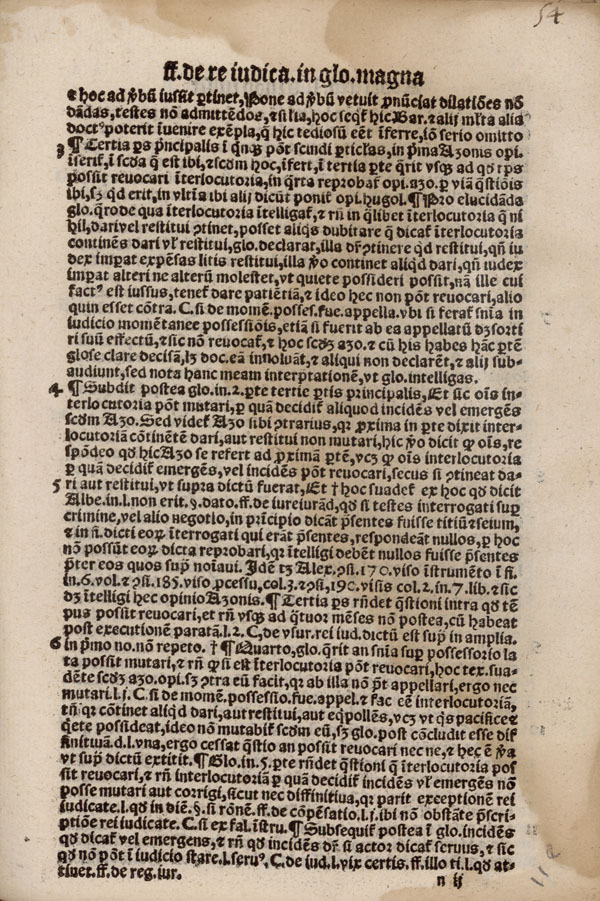 54
ff. de re iudica. in glo. magna
⁊ hoc ad v̄bū iussit ꝑtinet, Pone ad v̄bū vetuit ꝓnūciat dilatiões nõ
dãdas, testes nõ admittẽdos, ⁊ silia, hoc seqt̃ hic Bar. ⁊ alij mĩta alia
doctꝰ poterit ĩuenire exẽpla, q̃ hic tediosũ eẽt ĩferre, iõ serio omitto
3 ¶ Tertia ps pñcipalis ĩ qnqꝫ põt scindi ꝑticlas, in pĩma Azonis opi.
ĩserit̃, ĩ scda q̃ est ibi, ⁊ scdm hoc, ĩfert, ĩ tertia ꝑte q̃rit vsqꝫ ad qd tps
possũt reuocari ĩterlocutoria, in q̃rta reprobat̃ opi. azo. ꝑ viã q̃stiõis
ibi, sꝫ qd erit, in vltĩa ibi alij dicũt ponit̃ opi. hugol. ¶ Pro elucidãda
glo. q̃ro de qua ĩterlocutoria ĩtelligat̃, ⁊ rñ in q̃libet ĩterlocutoria q̃ ni
hil, dari vel restitui ꝯtinet, posset aliqs dubitare q̃ dicat̃ ĩterlocutoria
continẽs dari vl̃ restitui, glo. declarat, illa dr̃ ꝯtinere qd restitui, qñ iu
dex imꝑat expẽsas litis restitui, illa v̄o continet aliqd dari, qñ iudex
imꝑat alteri ne alterũ molestet, vt quiete possideri possit, nã ille cui
factꝰ est iussus, tenet̃ dare patiẽtiã, ⁊ ideo hec non põt reuocari, alio
quin esset cõtra. C. si de momẽ. posses. fue. appella. vbi si ferat̃ snĩa in
iudicio momẽtanee possessiõis, etiã si fuerit ab ea appellatũ dꝫ sorti
ri suũ effectũ, ⁊ sic nõ reuocat̃, ⁊ hoc scdꝫ azo. ⁊ cũ his habes hãc ꝑtẽ
glose clare decisã, lꝫ doc. eã inuoluãt, ⁊ aliqui non declarẽt, ⁊ alij sub-
audiunt, sed nota hanc meam interptationẽ, vt glo. intelligas.
4 ¶ Subdit postea glo. in. 2. ꝑte tertie ptis principalis, Et sic oĩs in-
terlocutoria põt mutari, ꝑ quã decidit̃ aliquod incidẽs vel emergẽs
scdm Azo. Sed videt̃ Azo sibi ꝯtrarius, qꝛ ꝓxima in ꝑte dixit inter-
locutoriã cõtinẽtẽ dari, aut restitui non mutari, hic v̄o dicit ꝙ oĩs, re
spõdeo qd hic Azo se refert ad ꝓximã ꝑtẽ, vcꝫ ꝙ oĩs interlocutoria
ꝑ quã decidit̃ emergẽs, vel incidẽs põt reuocari, secus si ꝯtineat da-
5 ri aut restitui, vt supra dictũ fuerat, Et † hoc suadet̃ ex hoc qd dicit
Albe. in. l. non erit. §. dato. ff. de iureiurãd, qd si testes interrogati suꝑ
crimine, vel alio negotio, in prĩcipio dicãt pñtes fuisse titiũ ⁊ seium,
⁊ in fi. dicti eoꝝ ĩterrogati qui erãt pñtes, respondeãt nullos, ꝑ hoc
nõ possũt eoꝝ dicta reprobari, qꝛ ĩtelligi debẽt nullos fuisse pñtes
pter eos quos supͣ noĩaui. Idẽ tꝫ Alex. ꝯsi. 170. viso ĩstrumẽto ĩ fi.
in. 6. vol. ⁊ ꝯsi. 185. viso ꝓcessu, col. 3. ⁊ ꝯsi, 190. visis col. 2. in. 7. lib. ⁊ sic
dꝫ ĩtelligi hec opinio Azonis. ¶ Tertia ps rñdet q̃stioni intra qd tẽ
pus possũt reuocari, et rñ vsqꝫ ad q̃tuor mẽses nõ postea, cũ habeat
post executionẽ paratã. l. 2. C. de vsur. rei iud. dictũ est supͣ in amplia.
6 in pĩmo no. nõ repeto. † ¶ Quarto, glo. q̃rit an snĩa suꝑ possessorio la
ta possit mutari, ⁊ rñ ꝙ si est ĩterlocutoria põt reuocari, hoc tex. sua-
dẽte scdꝫ azo. opi. sꝫ ꝯtra eũ facit, qꝛ ab illa nõ põt appellari, ergo nec
mutari. l. j. C. si de momẽ. possessio. fue. appel. ⁊ fac eẽ interlocutoriã,
tñ qꝛ cõtinet aliqd dari, aut restitui, aut eq̃pollẽs, vcꝫ vt qs pacifice ⁊
q̃ete possideat, ideo nõ mutabit̃ scdm eũ, sꝫ glo. post cõcludit esse dif
finitiuã. d. l. vna, ergo cessat q̃stio an possit reuocari nec ne, ⁊ hec ẽ v̄a
vt supͣ dictũ extitit. ¶ Glo. in. 5. ꝑte rñdet q̃stioni q̃ ĩterlocutoria pos
sit reuocari, ⁊ rñ interlocutoriã ꝑ quã decidit̃ incidẽs vl̃ emergẽs nõ
posse mutari aut corrigi, sicut nec diffinitiua, qꝛ parit exceptionẽ rei
iudicate. l. qd in diẽ. §. si rõnẽ. ff. de cõpẽsatio. l. j. ibi nõ obstãte pscri-
ptiõe rei iudicate. C. si ex fal. ĩstru. ¶ Subsequit̃ postea ĩ glo. incidẽs
qd dicat̃ vel emergens, ⁊ rñ qd incidẽs dr̃ si actor dicat̃ seruus, ⁊ sic
qd nõ põt ĩ iudicio stare. l. seruꝰ. C. de iud. l. vix certis. ff. illo ti. l. qd at-
tinet. ff. de reg. iur.
n ij